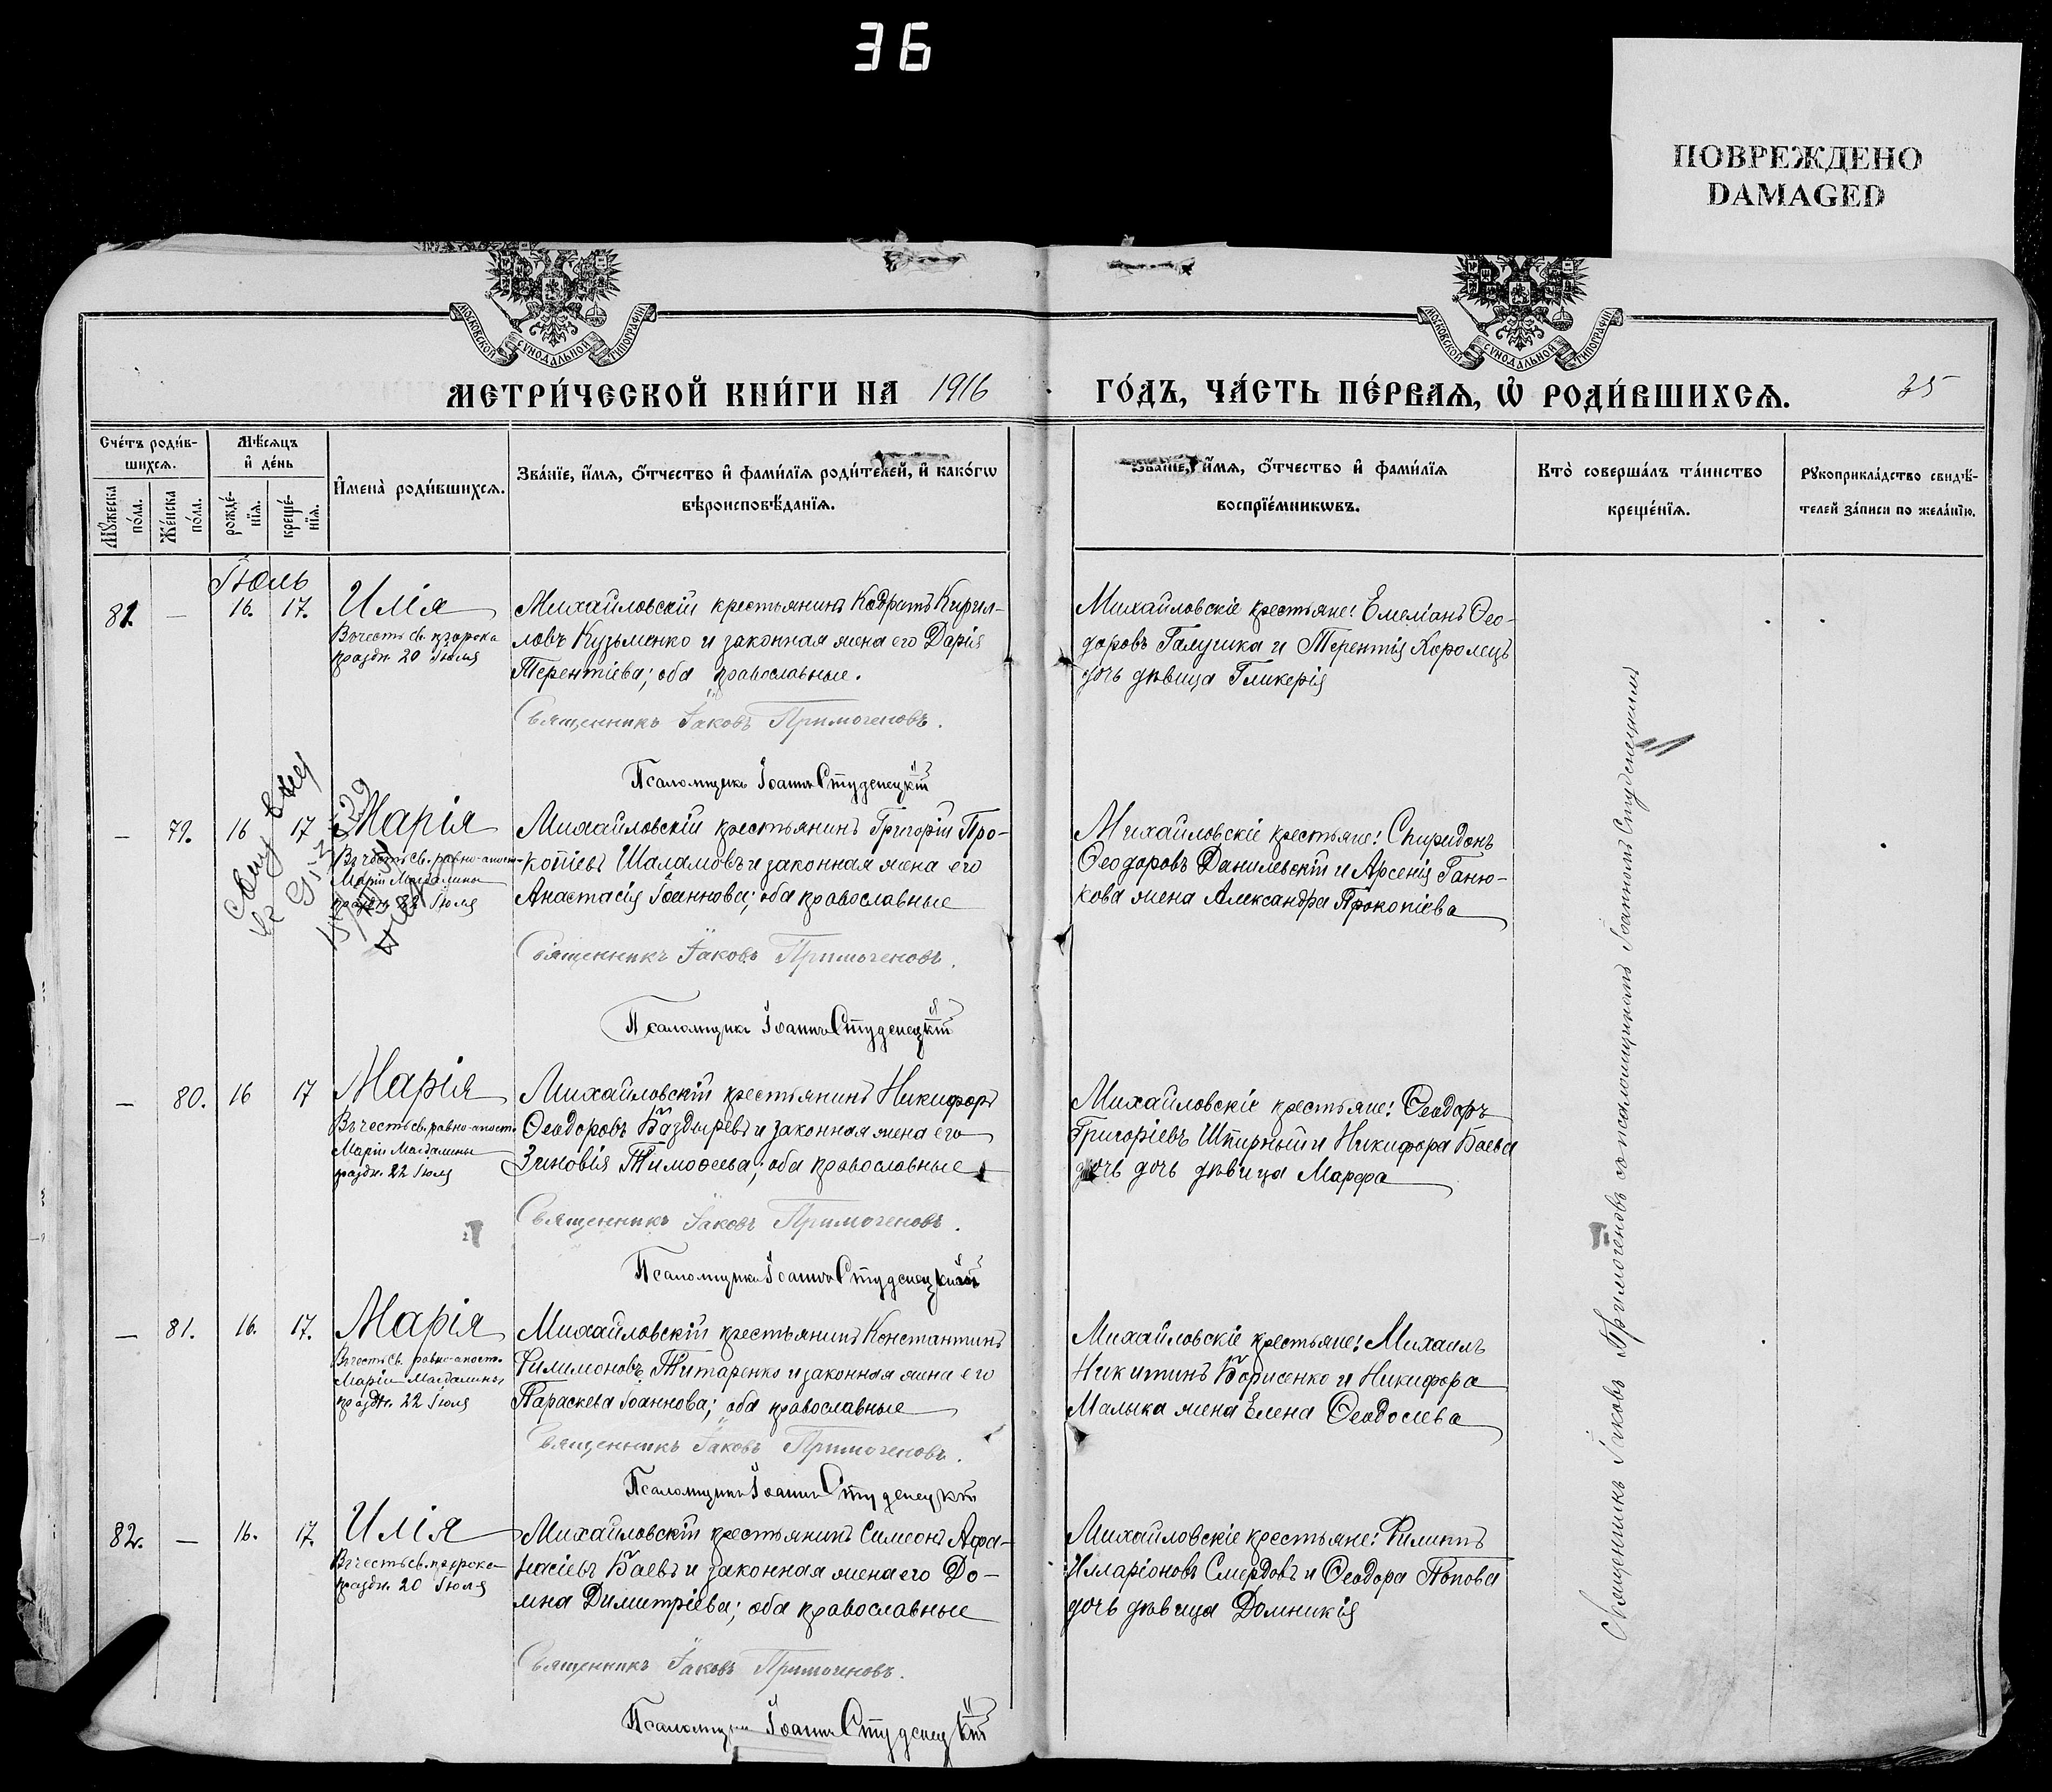 36
ПОВРЕЖДЕНО
DAMAGED
МОСКОВСКОЙ СУНОДАЛЬНОЙ ТИПОГРАФІИ
МОСКОВСКОЙ СУНОДАЛЬНОЙ ТИПОГРАФІИ
МЕТРИ́ЧЕСКОЙ КНИ́ГИ НА 1916 ГО́ДЪ, ЧА́СТЬ ПЕ́РВАѦ, Ѡ҆ РОДИ́ВШИХСѦ. 35
Сче́тъ роди́в-
шихсѧ.
Мꙋ́жеска
по́ла.
Же́нска
по́ла.
Мѣ́сѧцъ
и҆ де́нь
рожде́-
нїѧ.
креще́-
нїѧ.
И҆мена̀ роди́вшихсѧ.
Зва́нїе, и҆́мѧ, ѻ҆́тчество и҆ фами́лїѧ роди́телей, и҆ како́гѡ
вѣроисповѣ́данїѧ.
Зва́нїе, и҆́мѧ, ѻ҆́тчество и҆ фами́лїѧ
воспрїе́мникѡвъ.
Кто̀ соверша́лъ та́инство
креще́нїѧ.
Рꙋкоприкла́дство свидѣ́-
телей за́писи по жела́нїю.
Іюль
81. — 16. 17. Илія
Въ честь св. пророка
праздн. 20 Іюля
Михайловскій крестьянинъ Кодратъ Кирил-
ловъ Кузьменко и законная жена его Дарія
Терентіева; оба православные.
Священникъ Іаковъ Примогеновъ.
Псаломщикъ Іоаннъ Студенецкій
Михайловскіе крестьяне: Емеліанъ Ѳео-
доровъ Галушка и Терентія Королецъ
дочь дѣвица Гликерія
— 79. 16 17 Марія
Въ честь св. равно-апост.
Маріи Магдалины
праздн. 22 Іюля
Михайловскій крестьянинъ Григорій Про-
копіевъ Шаламовъ и законная жена его
Анастасія Іоаннова; оба православные
Священникъ Іаковъ Примогеновъ.
Псаломщикъ Іоаннъ Студенецкій
Михайловскіе крестьяне: Спиридонъ
Ѳеодоровъ Данилевскій и Арсенія Ганю-
кова жена Александра Прокопіева
— 80. 16 17 Марія
Въ честь св. равно-апост.
Маріи Магдалины
праздн. 22 Іюля
Михайловскій крестьянинъ Никифоръ
Ѳеодоровъ Баздыревъ и законная жена его
Зиновія Тимоѳеева; оба православные
Священникъ Іаковъ Примогеновъ.
Псаломщикъ Іоаннъ Студенецкій
Михайловскіе крестьяне: Ѳеодоръ
Григоріевъ Шпирный и Никифора Баева
дочь дочь дѣвица Марфа
— 81. 16. 17. Марія
Въ честь св. равно-апост.
Маріи Магдалины
праздн. 22 Іюля
Михайловскій крестьянинъ Константинъ
Филимоновъ Титаренко и законная жена его
Параскева Іоаннова; оба православные
Священникъ Іаковъ Примогеновъ.
Псаломщикъ Іоаннъ Студенецкій
Михайловскіе крестьяне: Михаилъ
Никитинъ Борисенко и Никифора
Малыка жена Елена Ѳеодосіева
82. — 16. 17. Илія
Въ честь св. пророка
праздн. 20 Іюля
Михайловскій крестьянинъ Симеонъ Афа-
насіевъ Баевъ и законная жена его До-
мна Димитріева; оба православные
Священникъ Іаковъ Примогеновъ.
Псаломщикъ Іоаннъ Студенецкій
Михайловскіе крестьяне: Филиппъ
Илларіоновъ Смердовъ и Ѳеодора Попова
дочь дѣвица Домникія
Священникъ Іаковъ Примогеновъ съ псаломщикомъ Іоанномъ Студенецкимъ